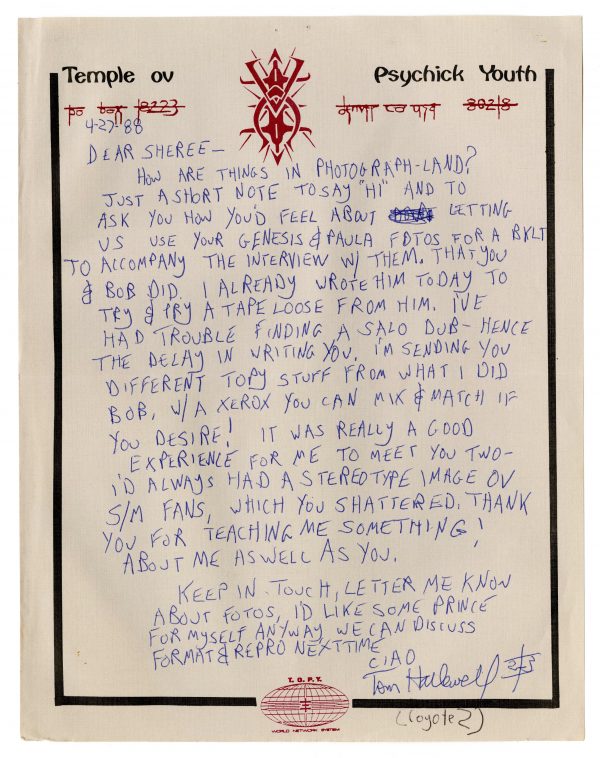 Temple ov Psychick Youth
po box 18223 denver co usa 80218
4-27-88
DEAR SHEREE—
HOW ARE THINGS IN PHOTOGRAPH-LAND?
JUST A SHORT NOTE TO SAY "HI" AND TO
ASK YOU HOW YOU'D FEEL ABOUT LETTING
US USE YOUR GENESIS & PAULA FOTOS FOR A BKLT
TO ACCOMPANY THE INTERVIEW W/ THEM. THAT YOU
& BOB DID. I ALREADY WROTE HIM TODAY TO
TRY & PRY A TAPE LOOSE FROM HIM. I'VE
HAD TROUBLE FINDING A SALO DUB- HENCE
THE DELAY IN WRITING YOU. I'M SENDING YOU
DIFFERENT TOPY STUFF FROM WHAT I DID
BOB, W/A XEROX YOU CAN MIX & MATCH IF
YOU DESIRE! IT WAS REALLY A GOOD
EXPERIENCE FOR ME TO MEET YOU TWO-
I'D ALWAYS HAD A STEREOTYPE IMAGE OV
S/M FANS, WHICH YOU SHATTERED. THANK
YOU FOR TEACHING ME SOMETHING!
ABOUT ME ASWELL AS YOU.
KEEP IN TOUCH, LETTER ME KNOW
ABOUT FOTOS, I'D LIKE SOME PRINCE
FOR MYSELF ANYWAY WE CAN DISCUSS
FORMAT & REPRO NEXT TIME
CIAO
Tom
(Coyote 2)
T.O.P.Y.
WORLD NETWORK SYSTEM